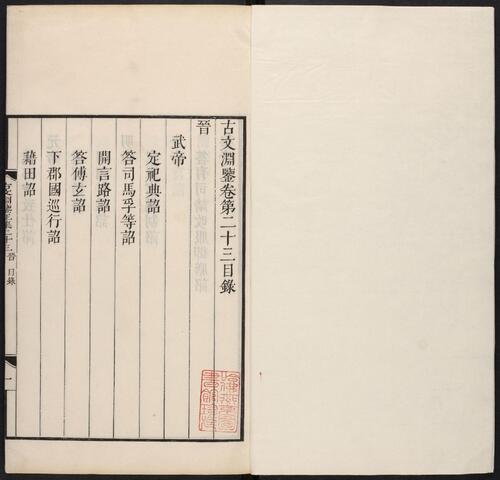 古文淵鑒卷第二十三目錄
晉
武帝
定祀典詔
答司馬孚等詔
開言路詔
答傅玄詔
下郡國巡行詔
藉田詔
古文淵鑒卷二十三 晉 目錄
一